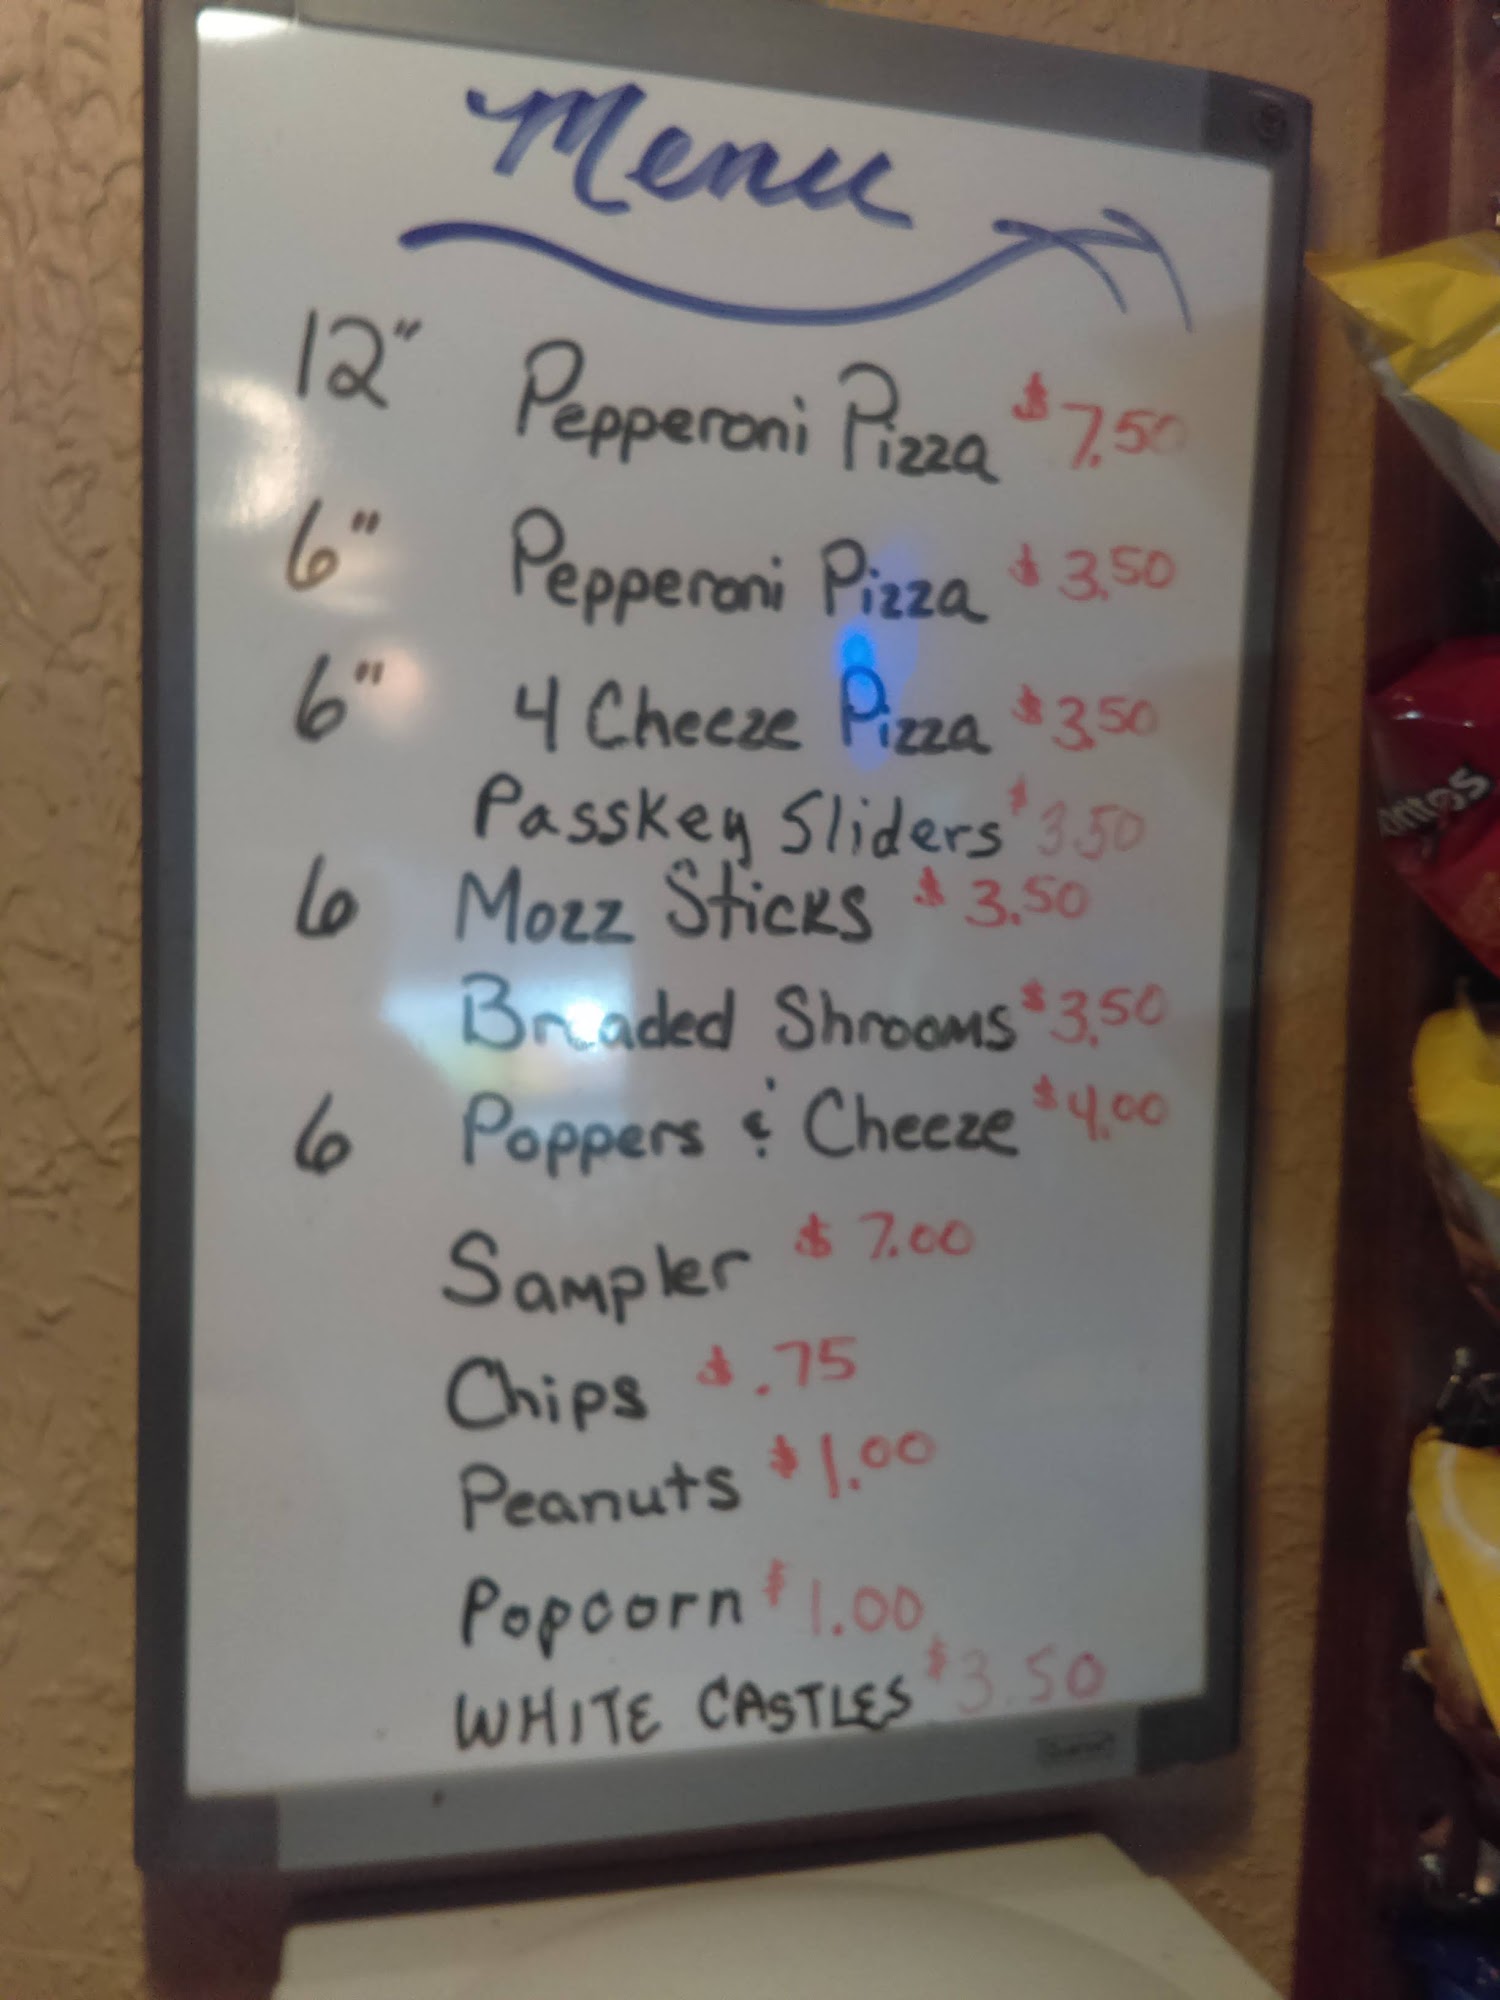 Menu
12" Pepperoni Pizza $7.50
6" Pepperoni Pizza $3.50
6" 4 Cheeze Pizza $3.50
Passkey Sliders $3.50
6 Mozz Sticks $3.50
Breaded Shrooms $3.50
6 Poppers & Cheeze $4.00
Sampler $7.00
Chips $.75
Peanuts $1.00
Popcorn $1.00
WHITE CASTLES $3.50